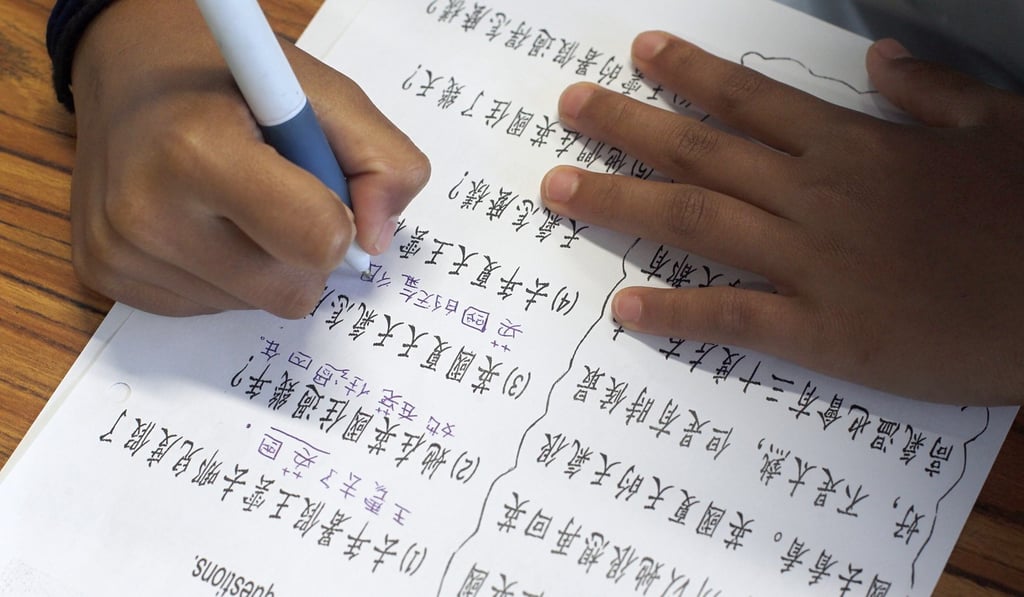 所以她很想再回英
國去看看。英國夏天的天氣很
好，不是太熱，但是有時候最
高氣溫也會有三十度左右
天都有
questions.
(1) 去年暑假王雲去哪兒度假了
王雲去了英国.
(2) 她在英國住過幾年?
她在英住過四年。
(3) 英國夏天天氣怎
英国的天气很
(4) 去年夏天王雲
天氣怎麼樣?
(5) 他們在英國住了幾天?
的暑假過得怎麼樣?